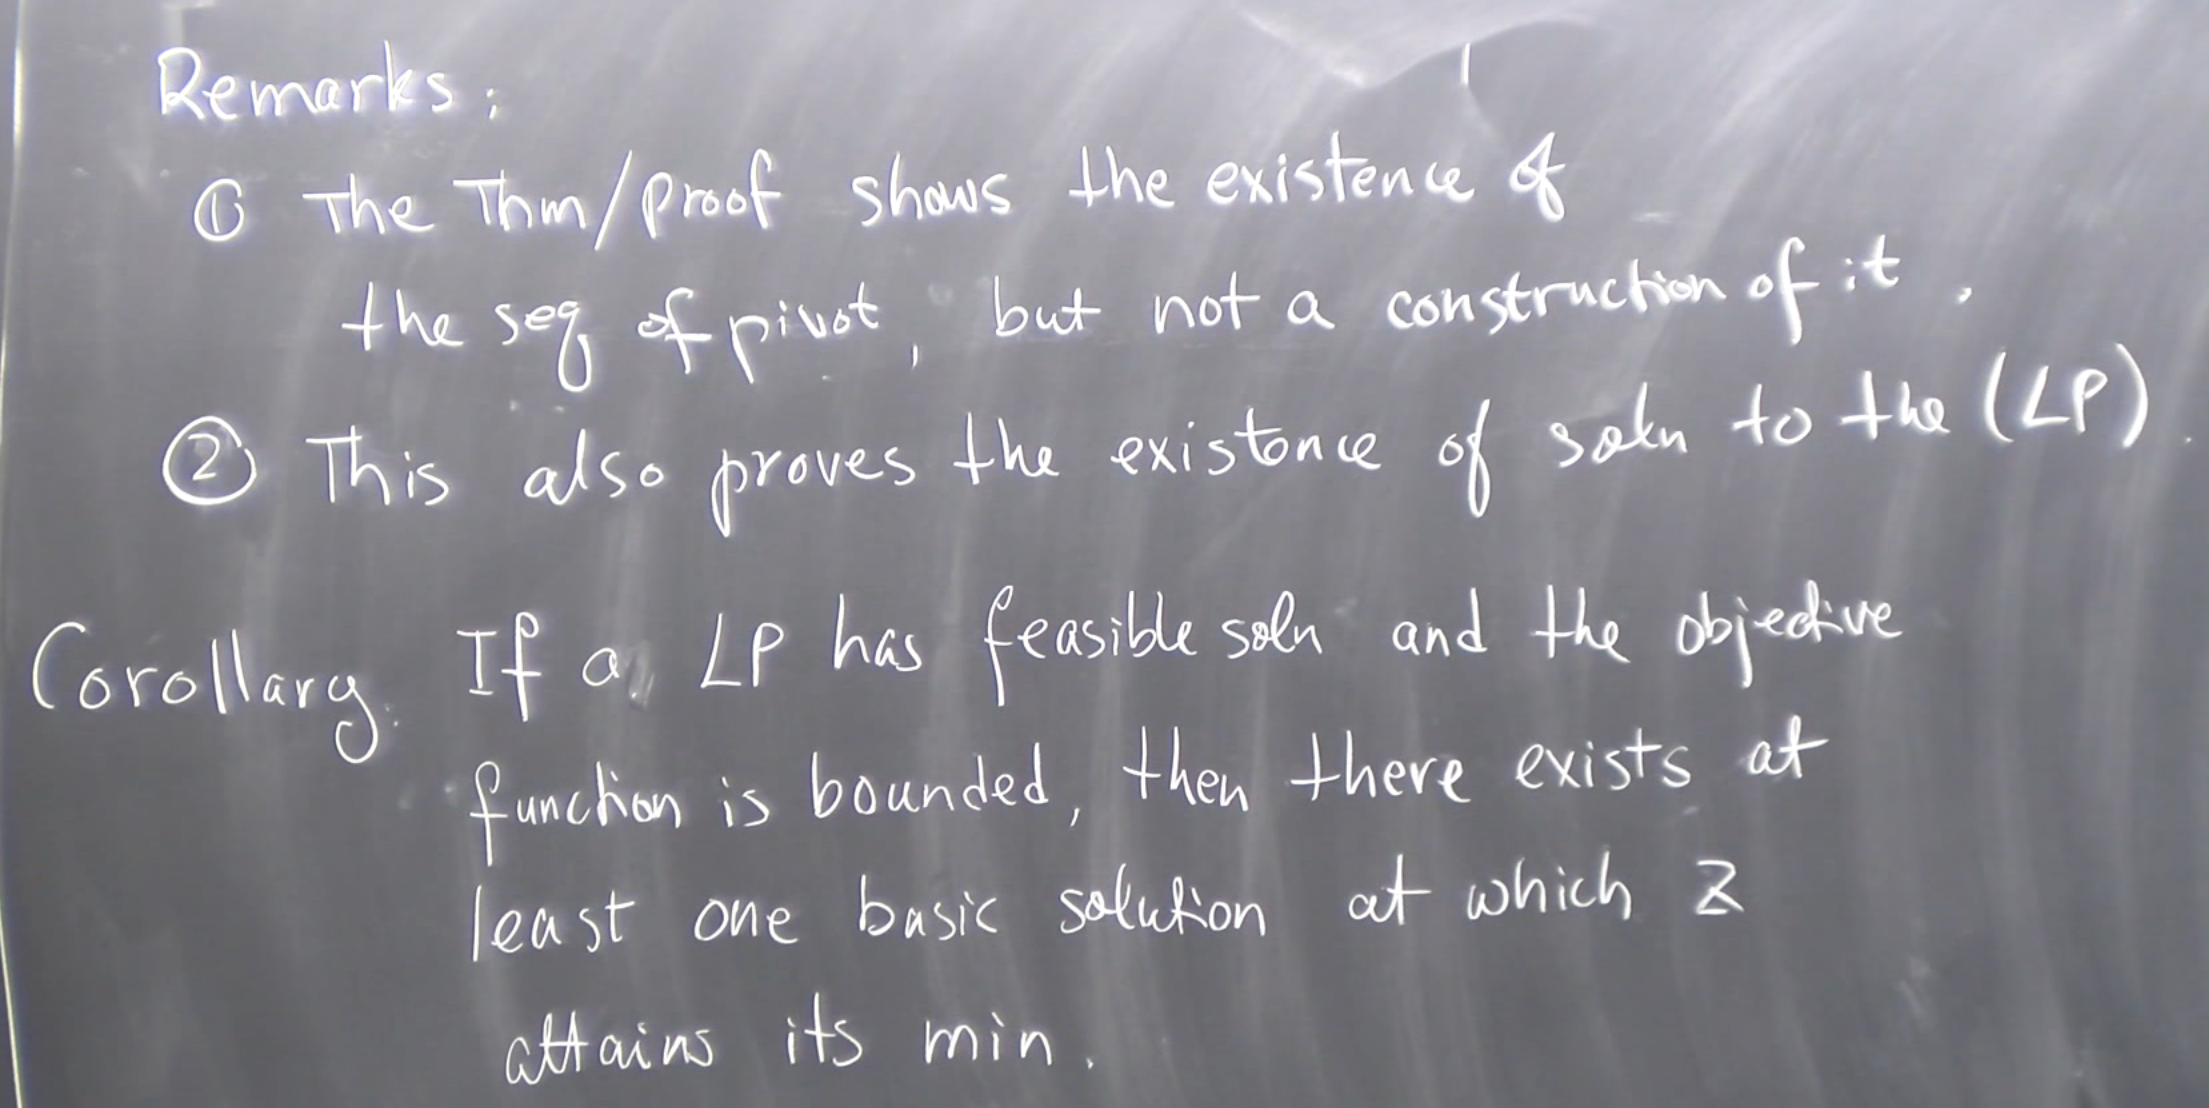 Remarks:
① The Thm/proof shows the existence of
the seq of pivot, but not a construction of it.
② This also proves the existence of soln to the (LP).
Corollary. If a LP has feasible soln and the objective
function is bounded, then there exists at
least one basic solution at which z
attains its min.